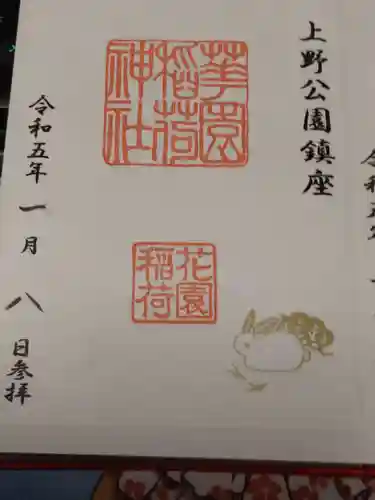 上野公園鎮座
華園
稲荷
神社
花園
稲荷
令和五年一月八日参拝
令和五年